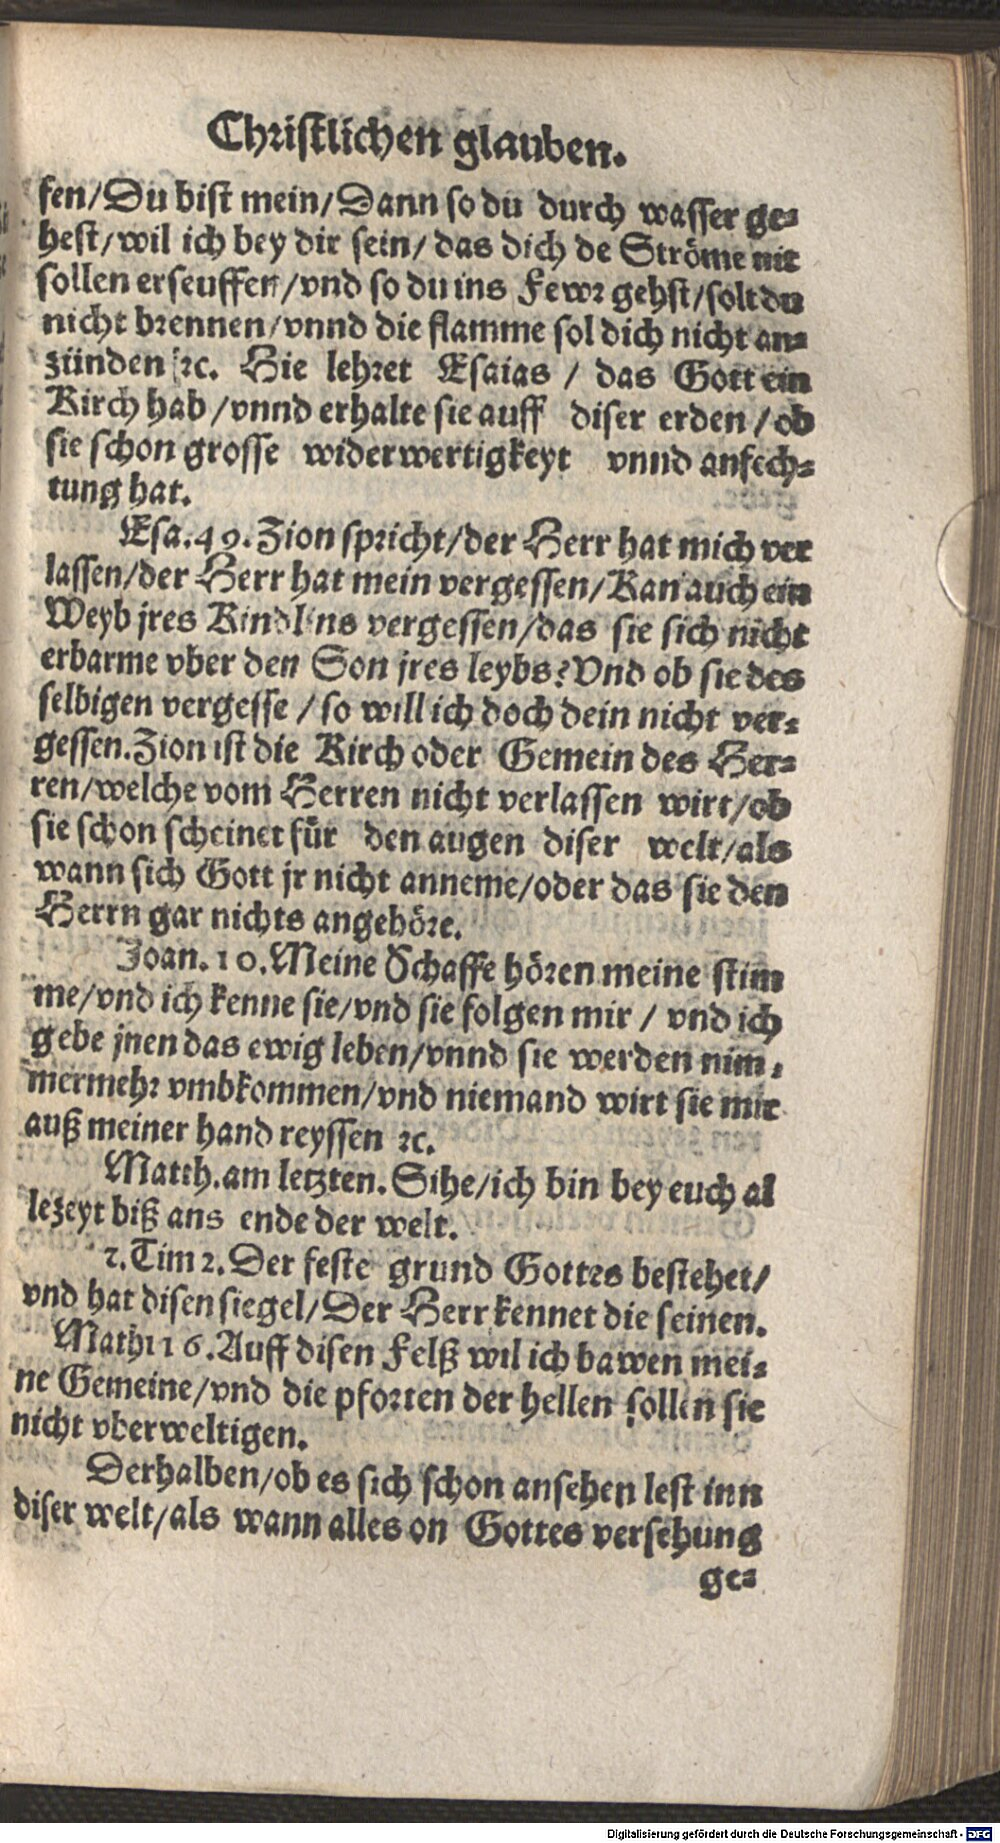 Christlichen glauben.
fen/Du bist mein/Dann so du durch wasser ge=
hest/wil ich bey dir sein/das dich de Ströme nit
sollen erseuffen/vnd so du ins Fewr gehst/solt du
nicht brennen/vnnd die flamme sol dich nicht an=
zünden ꝛc. Hie lehret Esaias / das Gott ein
Kirch hab/vnnd erhalte sie auff diser erden/ob
sie schon grosse widerwertigkeyt vnnd anfech=
tung hat.
Esa.49.Zion spricht/der Herr hat mich ver
lassen/der Herr hat mein vergessen/Kan auch ein
Weyb jres Kindlins vergessen/das sie sich nicht
erbarme vber den Son jres leybs?Vnd ob sie des
selbigen vergesse/so will ich doch dein nicht ver=
gessen.Zion ist die Kirch oder Gemein des Her=
ren/welche vom Herren nicht verlassen wirt/ob
sie schon scheinet für den augen diser welt/als
wann sich Gott jr nicht anneme/oder das sie den
Herrn gar nichts angehöre.
Joan.10.Meine Schaffe hören meine stim
me/vnd ich kenne sie/vnd sie folgen mir / vnd ich
gebe jnen das ewig leben/vnnd sie werden nim=
mermehr vmbkommen/vnd niemand wirt sie mir
auß meiner hand reyssen ꝛc.
Matth.am letzten.Sihe/ich bin bey euch al
lezeyt biß ans ende der welt.
2.Tim 2.Der feste grund Gottes bestehet/
vnd hat disen siegel/Der Herr kennet die seinen.
Math 16.Auff disen Felß wil ich bawen mei=
ne Gemeine/vnd die pforten der hellen sollen sie
nicht vberweltigen.
Derhalben/ob es sich schon ansehen lest inn
diser welt/als wann alles on Gottes versehung
ge=
Digitalisierung gefördert durch die Deutsche Forschungsgemeinschaft - DFG